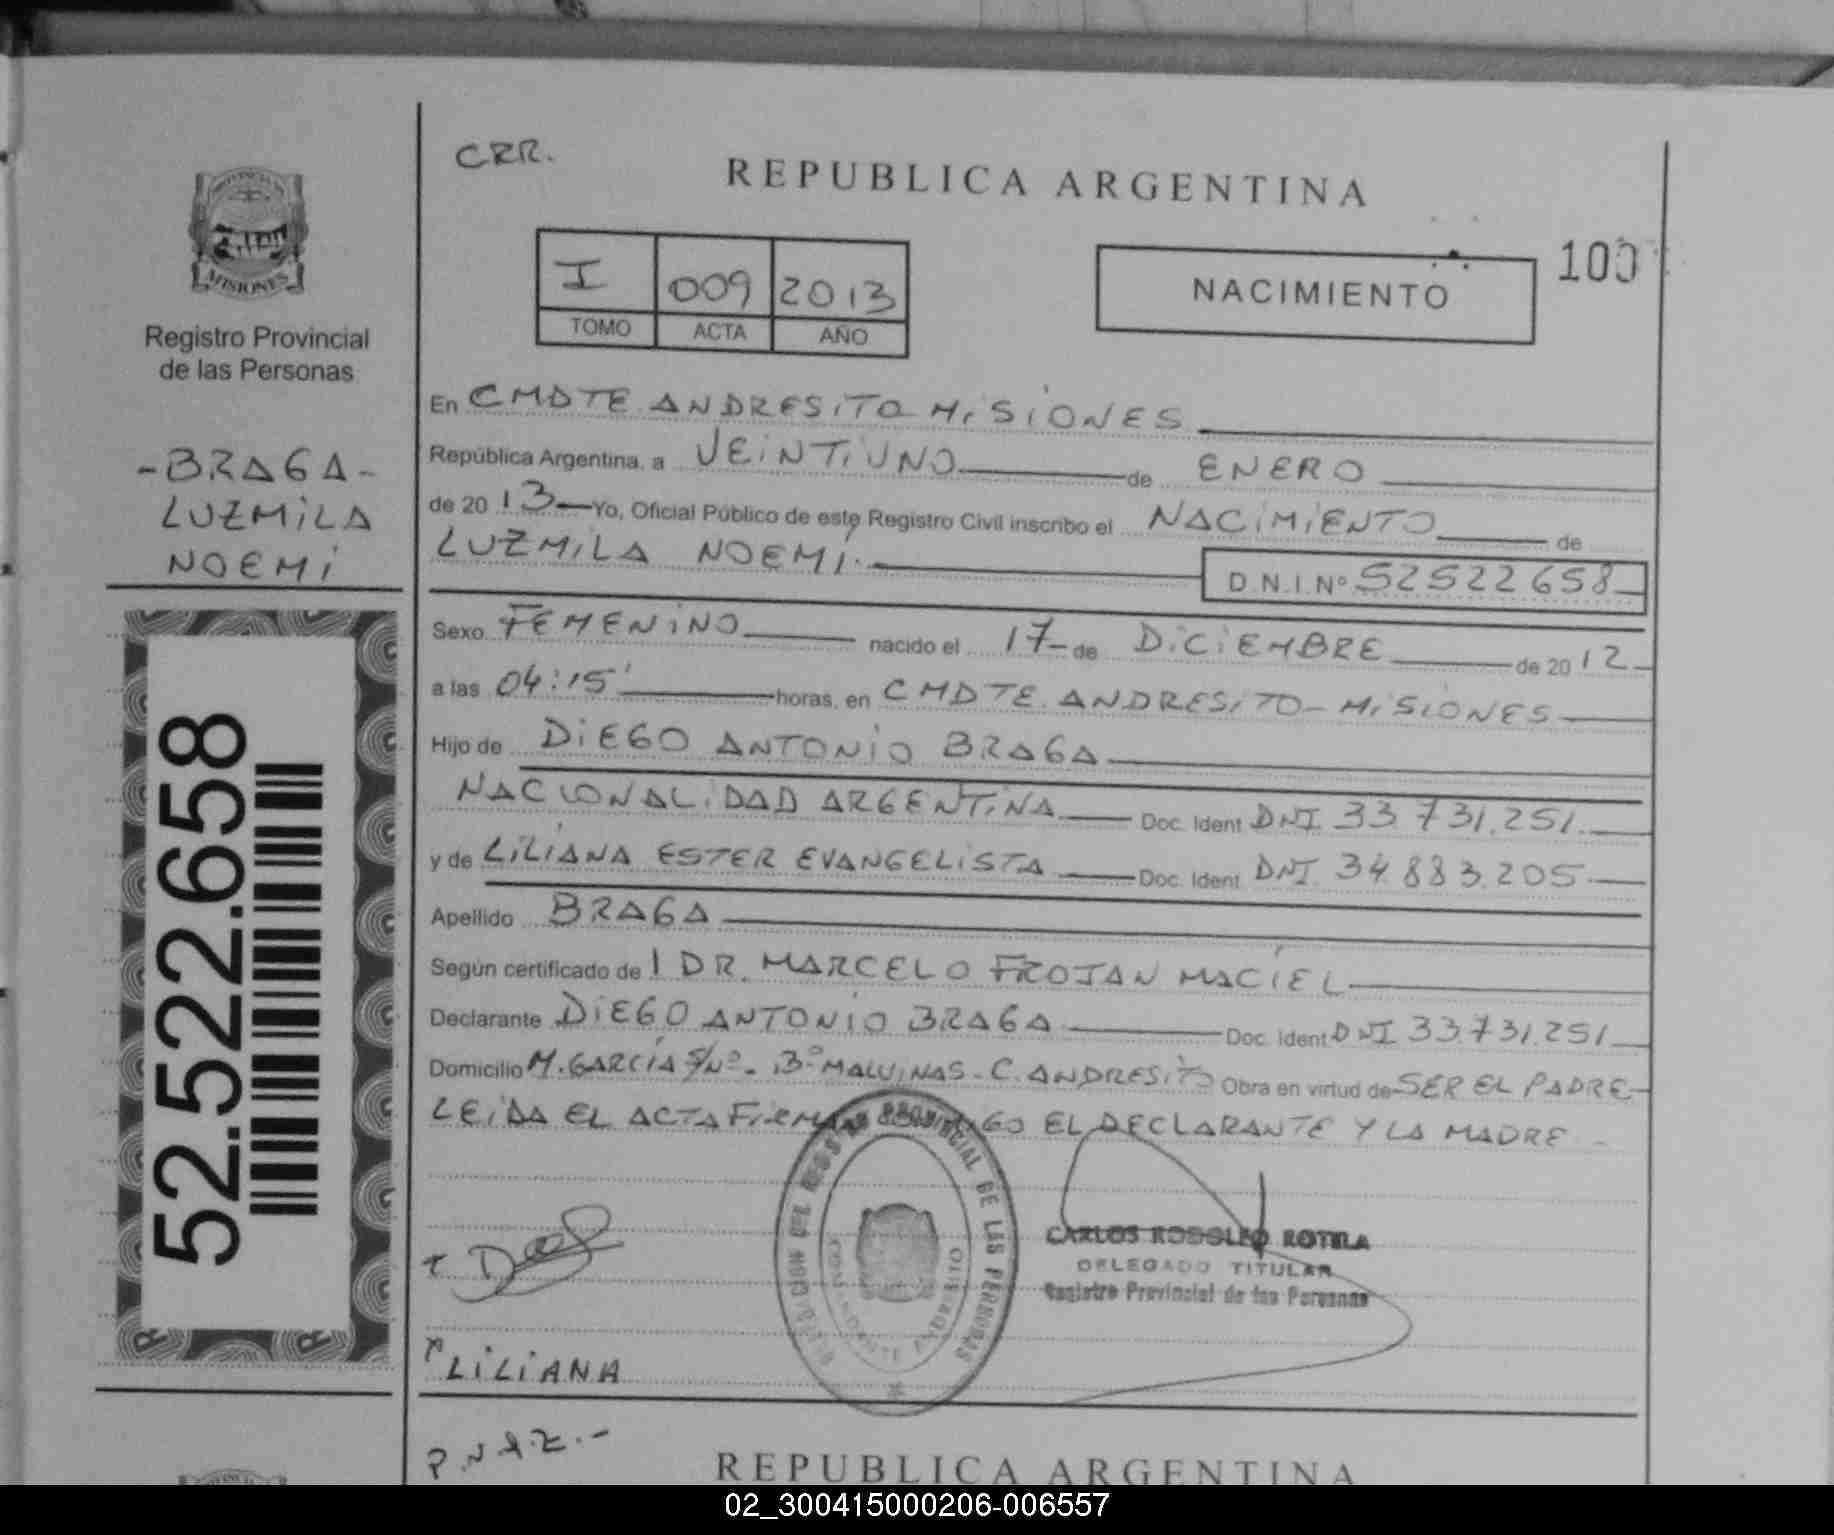 CRR.
REPUBLICA ARGENTINA
I 009 2013
TOMO ACTA AÑO
NACIMIENTO
100
PROVINCIA DE
MISIONES
Registro Provincial
de las Personas
-BRAGA-
LUZMILA
NOEMI
52.522.658
En CMDTE ANDRESITO MISIONES
República Argentina, a VEINTIUNO de ENERO
de 20 13 Yo, Oficial Público de este Registro Civil inscribo el NACIMIENTO de
LUZMILA NOEMI. D.N.I.Nº 52522658
Sexo FEMENINO nacido el 17 de DICIEMBRE de 20 12
a las 04:15' horas, en CMDTE. ANDRESITO - MISIONES
Hijo de DIEGO ANTONIO BRAGA
NACIONALIDAD ARGENTINA Doc. Ident DNI 33.731.251.
y de LILIANA ESTER EVANGELISTA Doc. Ident. DNI 34.883.205
Apellido BRAGA
Según certificado de 1 DR. MARCELO FROJAN MACIEL
Declarante DIEGO ANTONIO BRAGA Doc. Ident DNI 33.731.251
Domicilio M. GARCÍA S/Nº. Bº MALVINAS - C. ANDRESITO Obra en virtud de SER EL PADRE
LEIDA EL ACTA FIRMAN CONMIGO EL DECLARANTE Y LA MADRE
REGISTRO PROVINCIAL DE LAS PERSONAS
COMANDANTE ANDRESITO
CARLOS RODOLFO ROTELA
DELEGADO TITULAR
Registro Provincial de las Personas
LILIANA
REPUBLICA ARGENTINA
02_300415000206-006557